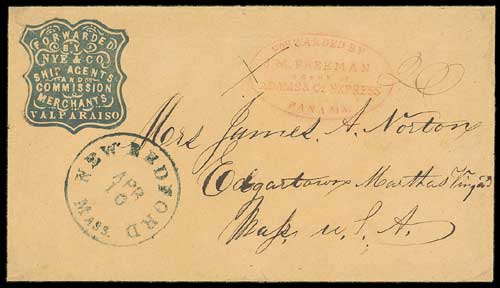 FORWARDED
BY
NYE & CO.
SHIP AGENTS
AND
COMMISSION
MERCHANTS
VALPARAISO
FORWARDED BY
J.M. FREEMAN
AGENT OF
ADAMS & Co EXPRESS
PANAMA
20
NEW-BEDFORD
APR
10
MASS.
Mrs James. A. Norton
Edgartown Marthas Vinyard
Mass. U. S. A.